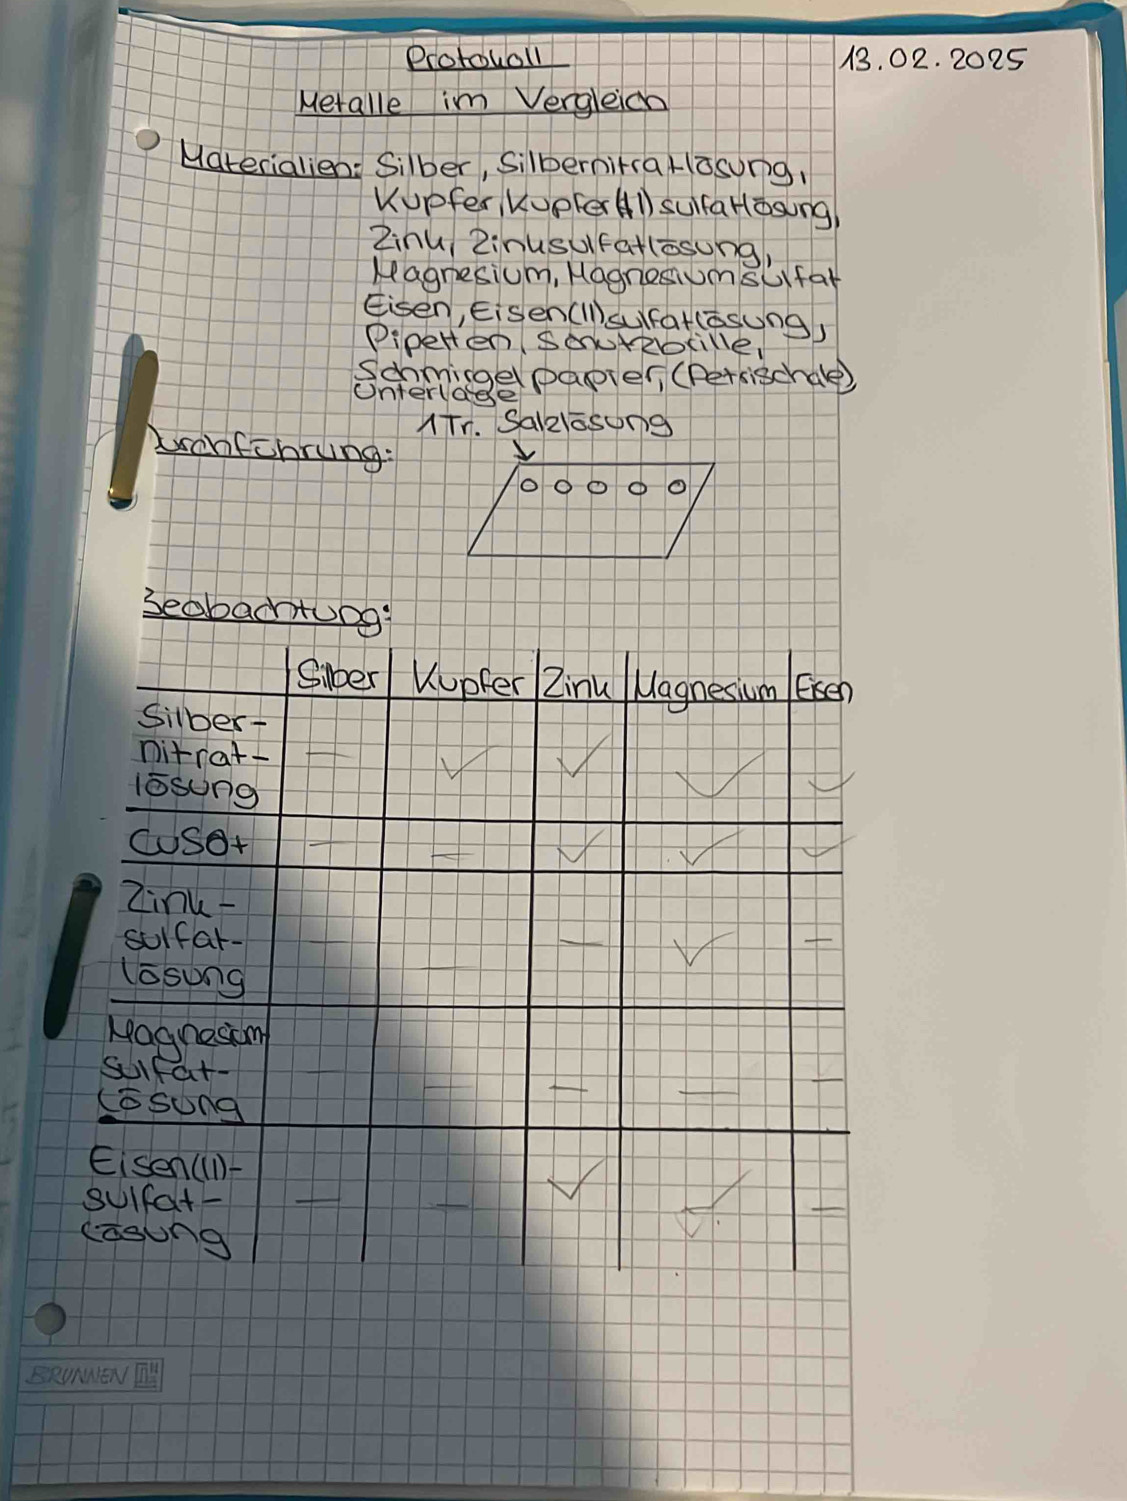 Protokoll 13.02.2025
Metalle im Vergleich
Materialien: Silber, Silbernitratlösung,
Kupfer, Kupfer(II)sulfatlösung,
Zink, Zinksulfatlösung,
Magnesium, Magnesiumsulfat
Eisen, Eisen(II)sulfatlösung,
Pipetten, Schutzbrille,
Schmirgelpapier, (Petrischale),
Unterlage
1Tr. Salzlösung
Durchführung:
Beobachtung:
Silber Kupfer Zink Magnesium Eisen
Silber-
nitrat- — ✓ ✓ ✓ ✓
lösung
CuSO4 — — ✓ ✓ ✓
Zink-
sulfat- — — — ✓ —
lösung
Magnesium
sulfat- — — — — —
lösung
Eisen(II)-
sulfat- — — ✓ ✓ —
lösung
BRUNNEN